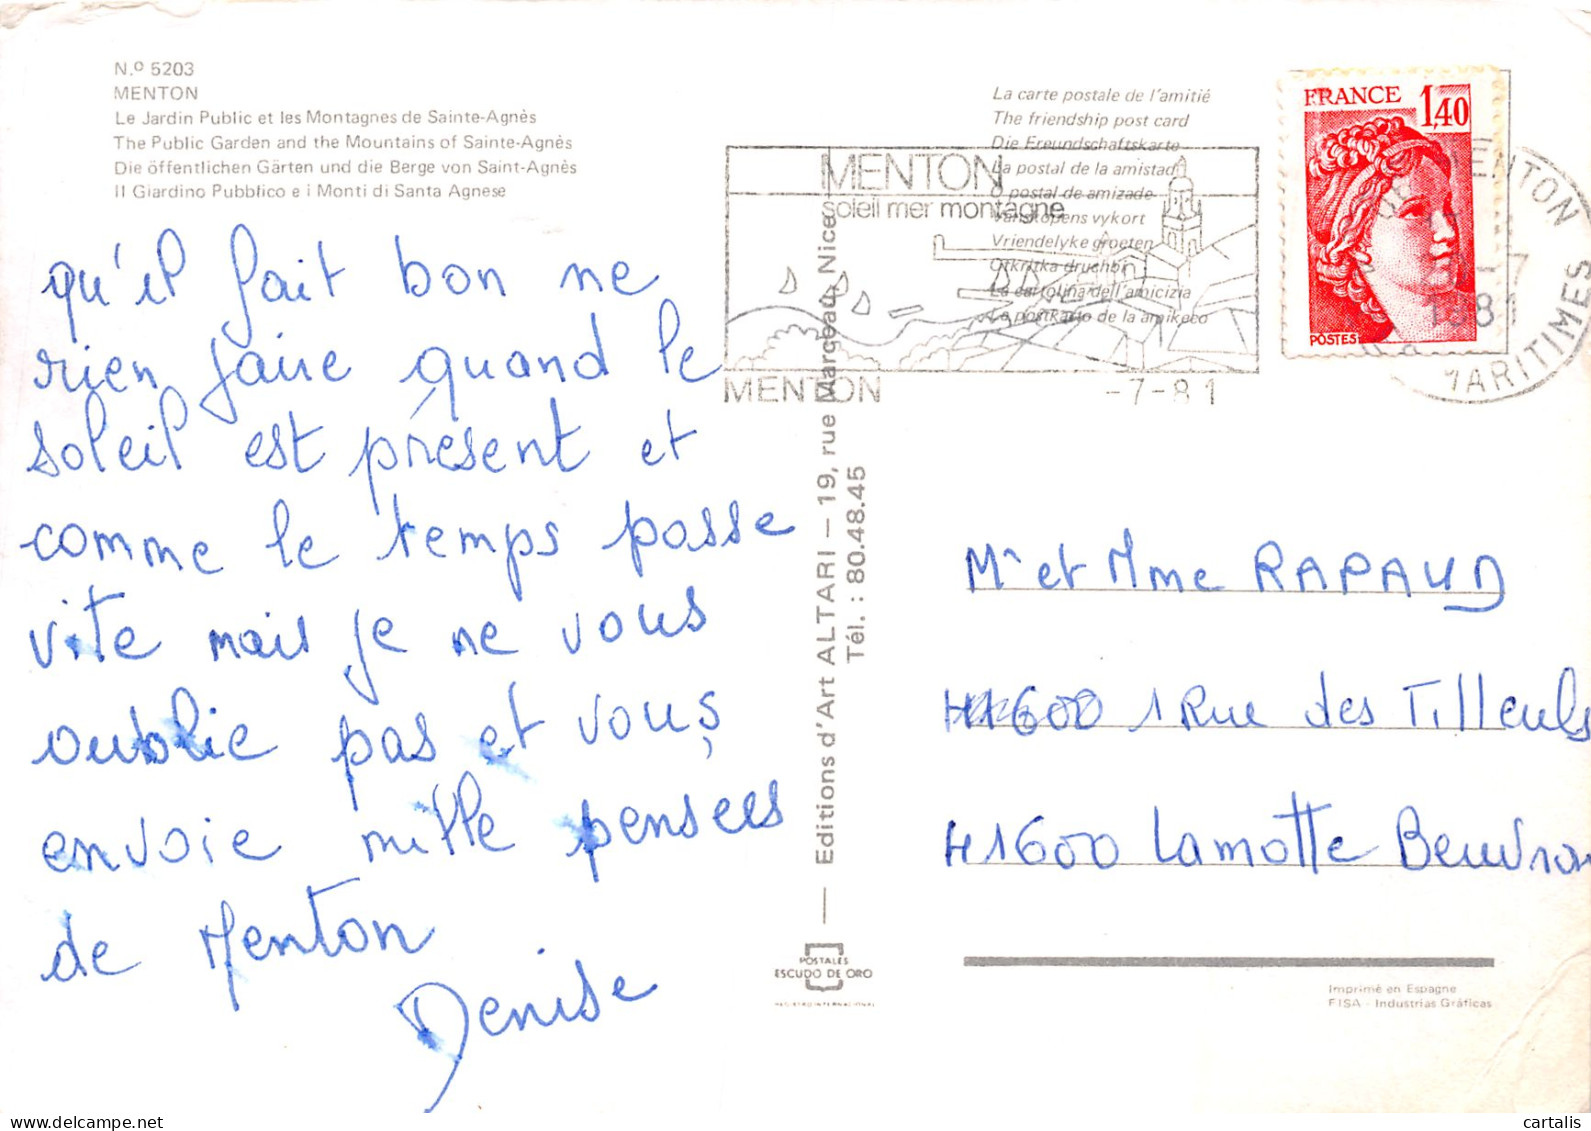 N.º 5203
MENTON
Le Jardin Public et les Montagnes de Sainte-Agnès
The Public Garden and the Mountains of Sainte-Agnès
Die öffentlichen Gärten und die Berge von Saint-Agnès
Il Giardino Pubblico e i Monti di Santa Agnese
qu'il fait bon ne
rien faire quand le
soleil est présent et
comme le temps passe
vite mais je ne vous
oublie pas et vous
envoie mille pensées
de Menton
Denise
La carte postale de l'amitié
The friendship post card
Die Freundschaftskarte
La postal de la amistad
O postal de amizade
Vänskapens vykort
Vriendelyke groeten
Otkritka druchbi
La cartolina dell'amicizia
La postkarto de la amikeco
MENTON
soleil mer montagne
MENTON
-7-81
FRANCE
1,40
POSTES
MENTON
-7
1981
MARITIMES
Editions d'Art ALTARI — 19, rue Marceau, Nice
Tél. : 80.48.45
POSTALES
ESCUDO DE ORO
REGISTRO INTERNACIONAL
Mr et Mme RAPAUD
41600 1 Rue des Tilleuls
41600 Lamotte Beuvron
Imprimé en Espagne
FISA - Industrias Gráficas
cartalis